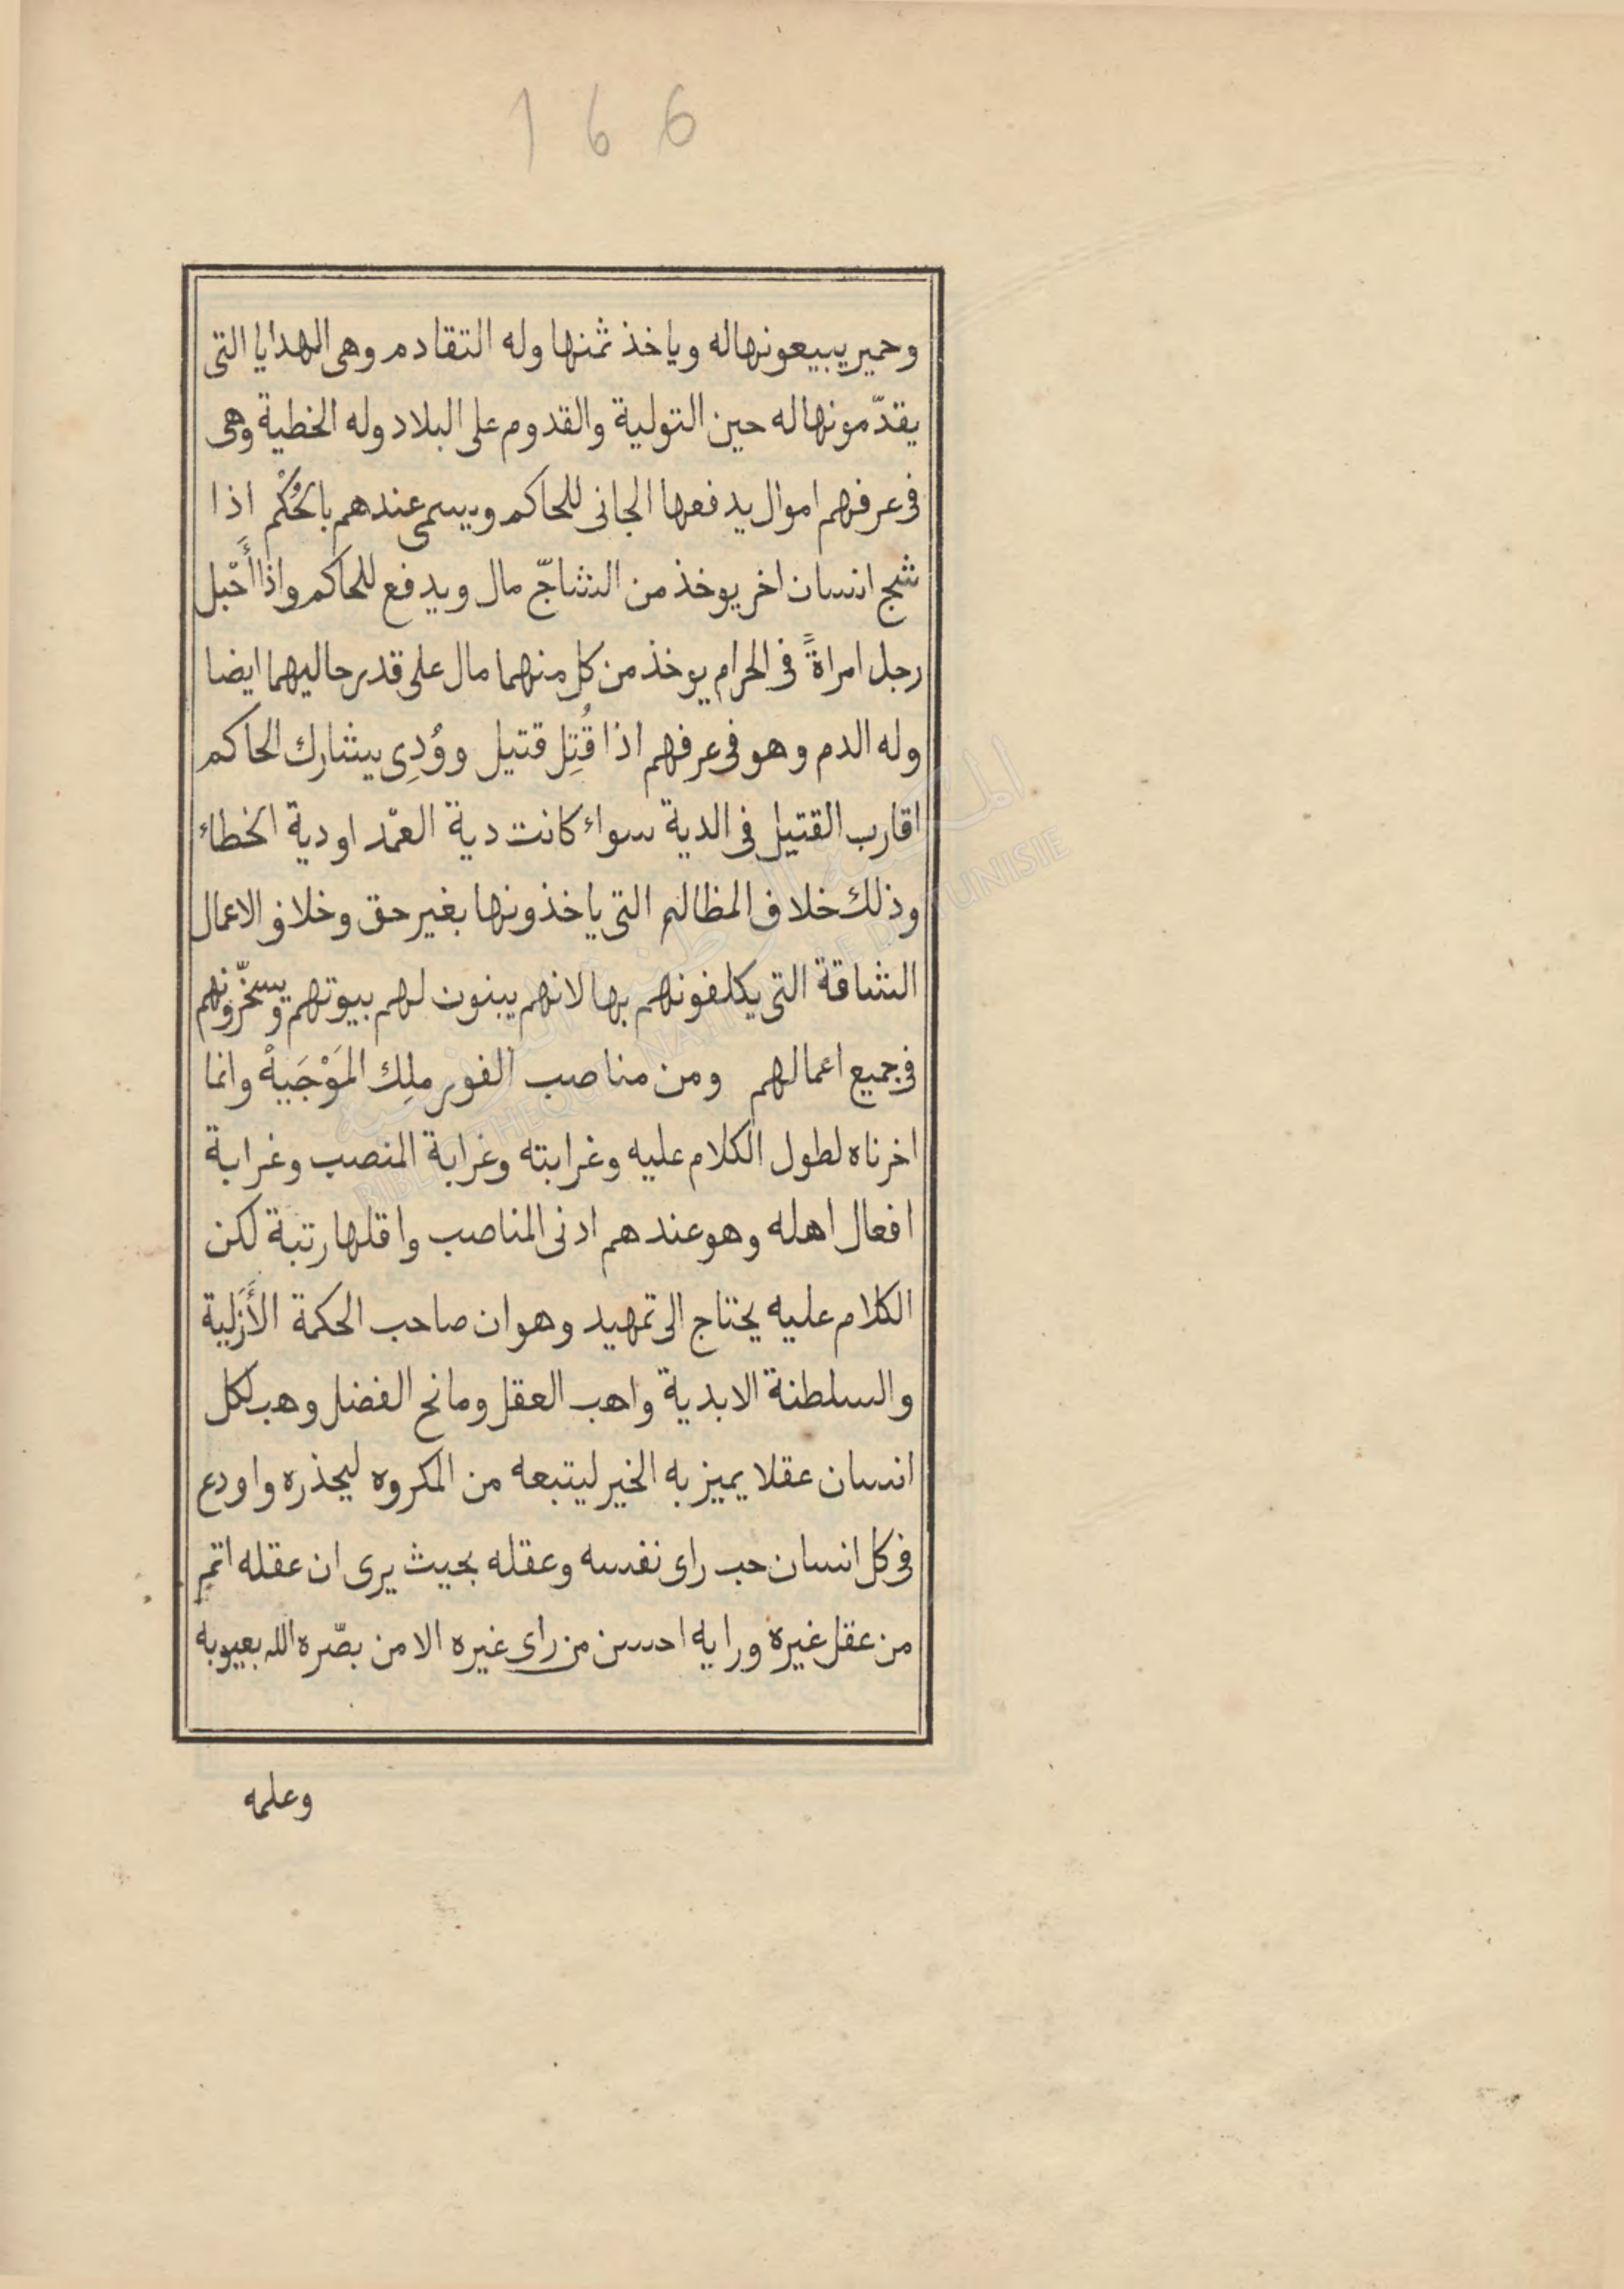 166
وحمير يبيعونها له وياخذ ثمنها وله التقادم وهى الهدايا التى
يقدّمونها له حين التولية والقدوم على البلاد وله الخطية وهى
فى عرفهم اموال يدفعها الجانى للحاكم ويسمى عندهم بالحُكْم اذا
شج انسان اخر يوخذ من الشاجّ مال ويدفع للحاكم واذا أَحْبل
رجل امراةً فى الحرام يوخذ من كل منهما مال على قدر حاليهما ايضا
وله الدم وهو فى عرفهم اذا قُتِل قتيل ووُدِى يشارك الحاكم
اقارب القتيل فى الدية سواء كانت دية العمْد او دية الخطاء
وذلك خلاف المظالم التى ياخذونها بغير حق وخلاف الاعمال
الشاقة التى يكلفونهم بها لانهم يبنون لهم بيوتهم ويسخّرونهم
فى جميع اعمالهم ومن مناصب الفور ملِك المَوْجَيهْ وانما
اخرناه لطول الكلام عليه وغرابته وغرابة المنصب وغرابة
افعال اهله وهو عندهم ادنى المناصب واقلها رتبة لكن
الكلام عليه يحتاج الى تمهيد وهو ان صاحب الحكمة الأَزَلية
والسلطنة الابدية واهب العقل ومانح الفضل وهب لكل
انسان عقلا يميز به الخير ليتبعه من المكروه ليحذره واودع
فى كل انسان حب راى نفسه وعقله بحيث يرى ان عقله اتم
من عقل غيره ورايه احسن من راى غيره الا من بصّره الله بعيوبه
وعلمه
المكتبة الوطنية التونسية
BIBLIOTHEQUE NATIONALE DE TUNISIE